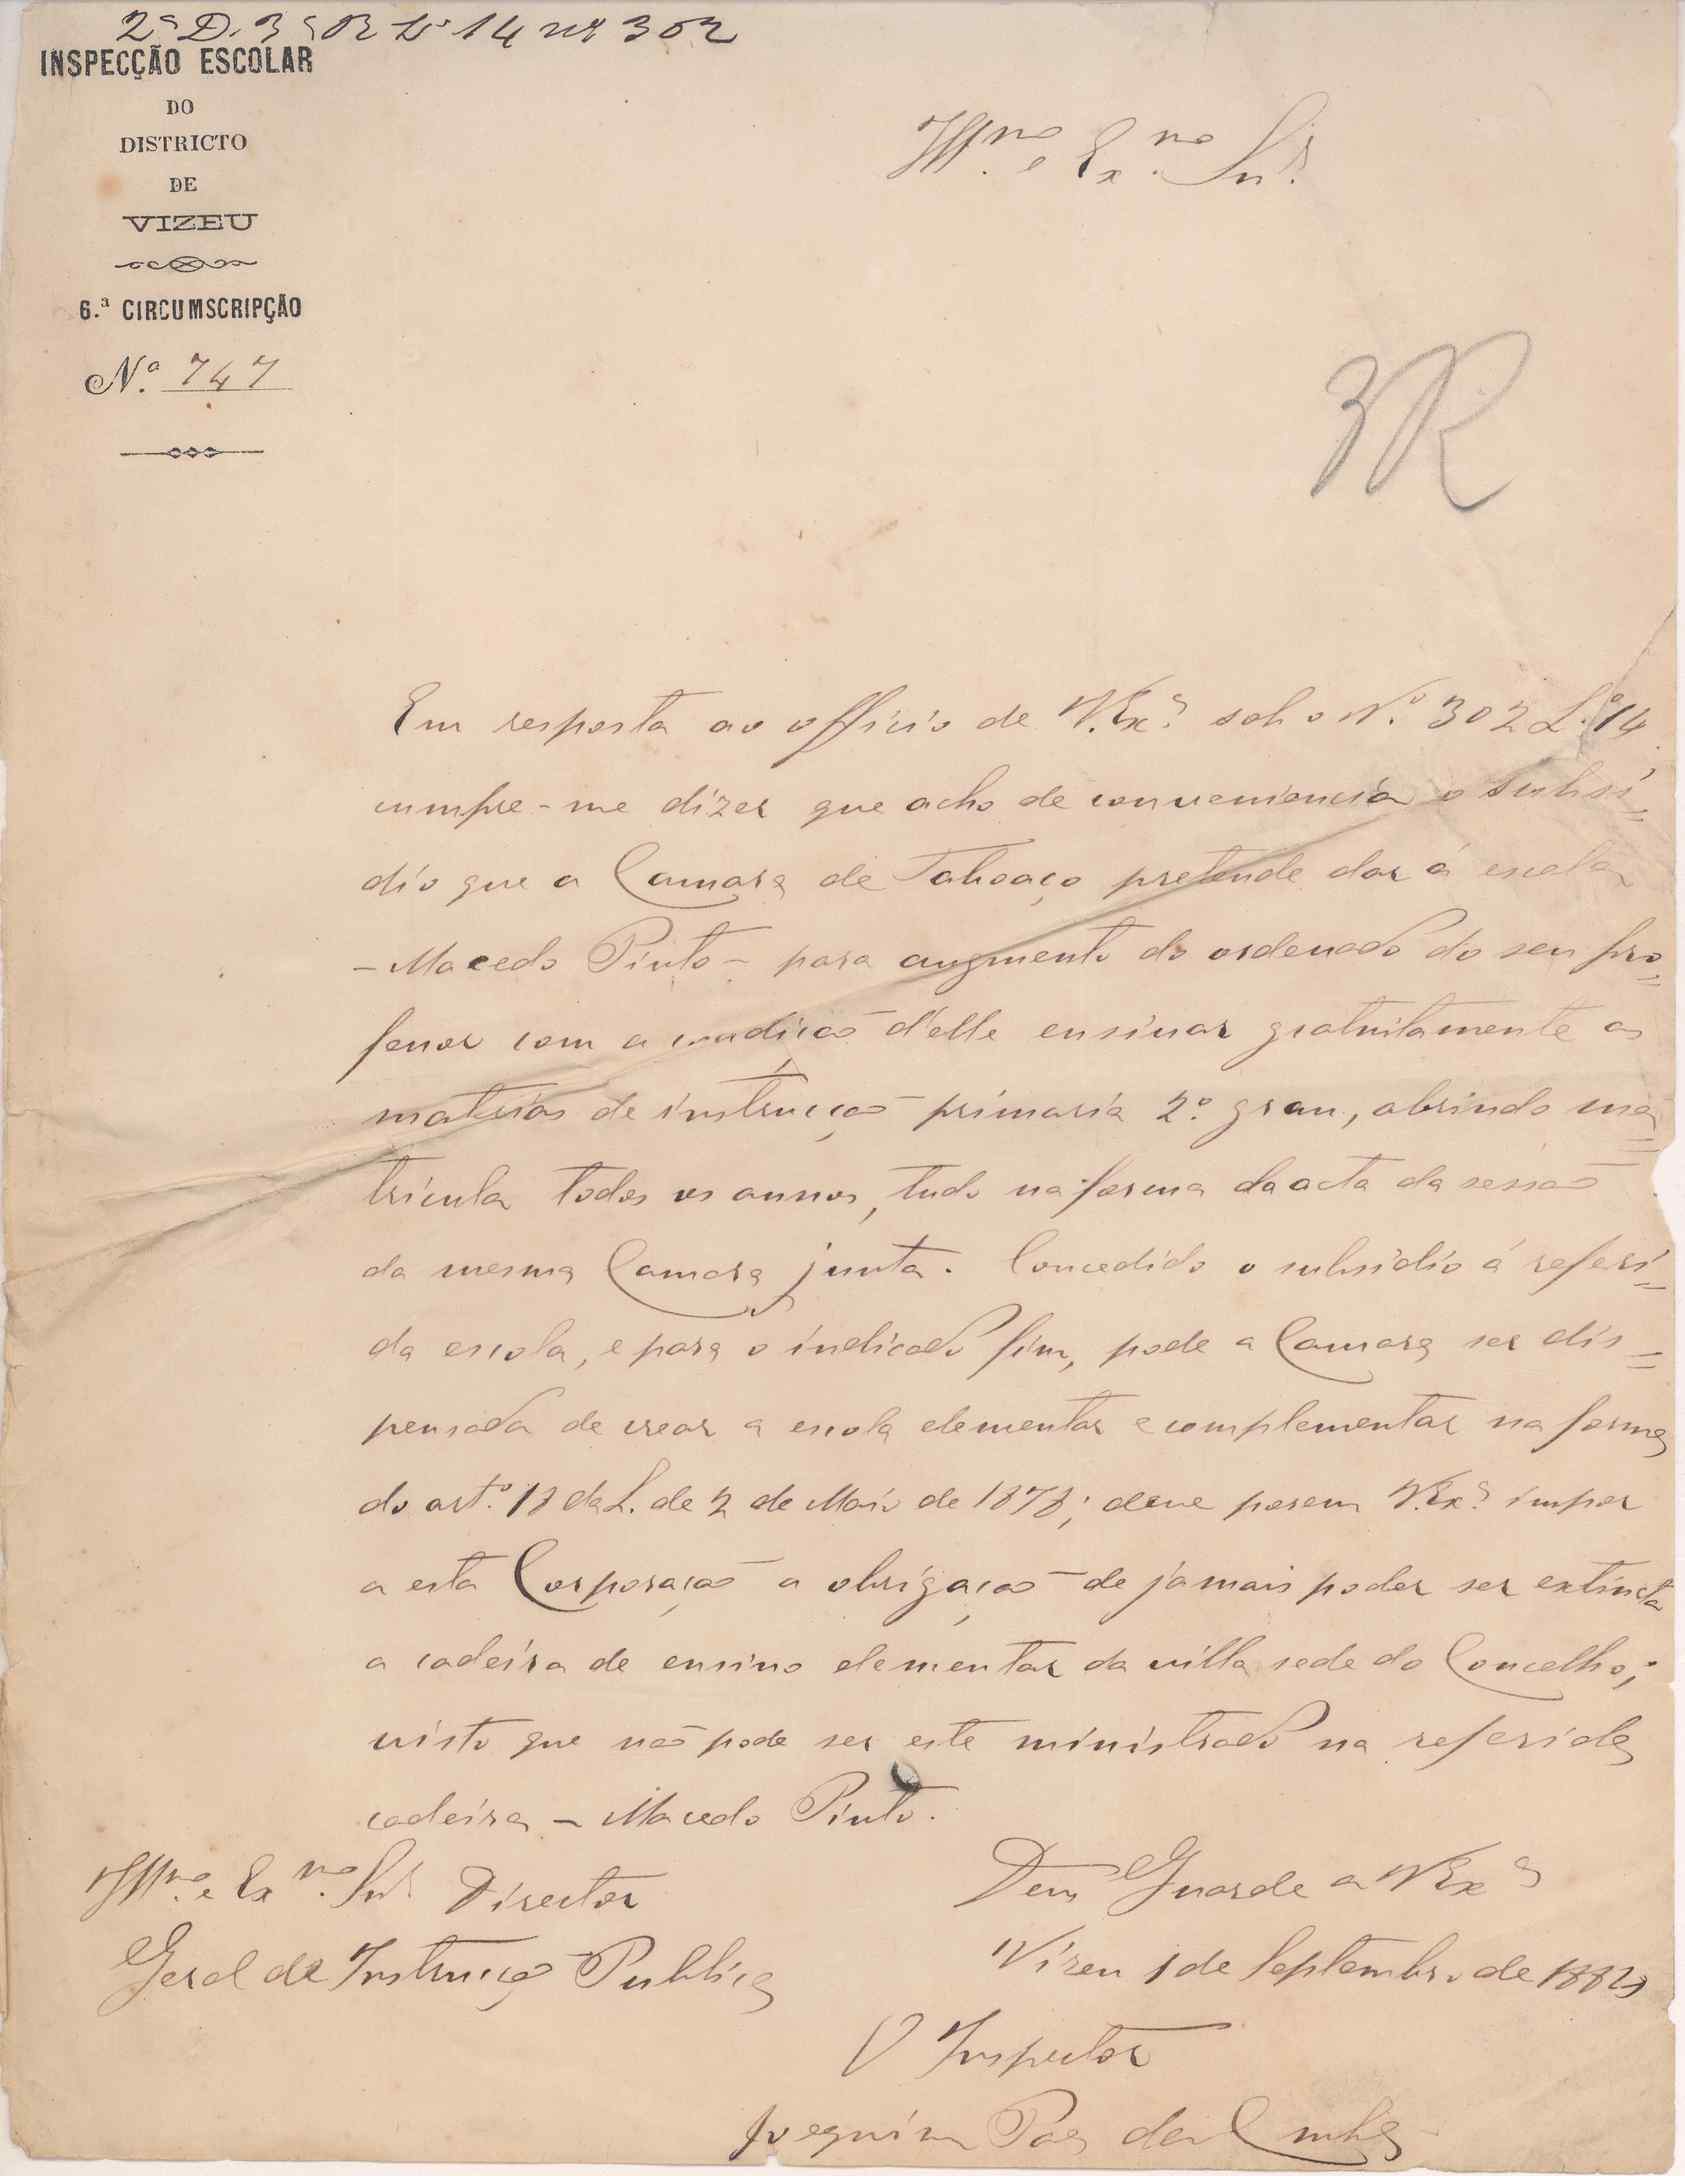 2ª D. 3ª R Lº 14 nº 302
INSPECÇÃO ESCOLAR
DO
DISTRICTO
DE
VIZEU
6.ª CIRCUMSCRIPÇÃO
N.º 747
Illmo. e Exmo. Snr.
3R
Em resposta ao officio de V. Exª sob o N.º 302 L.º 14
cumpre-me dizer que acho de conveniencia o subsi=
dio que a Camara de Taboaço pretende dar á escola
- Macedo Pinto - para augmento do ordenado do seu pro=
fessor com a condição d'elle ensinar gratuitamente as
materias de instrucção primaria 2.º grau, abrindo ma=
tricula todos os annos, tudo na forma da acta da sessão
da mesma Camara junta. Concedido o subsidio á referi=
da escola, e para o indicado fim, pode a Camara ser dis=
pensada de crear a escola elementar e complementar na forma
do artº. 18 da L. de 2 de Maio de 1878; deve porem V. Exª impor
a esta Corporação a obrigação de jamais poder ser extincta
a cadeira de ensino elementar da villa sede do Concelho;
visto que não pode ser este ministrado na referida
cadeira - Macedo Pinto.
Illmo. e Exmo. Snr Director
Geral de Instrucção Publica
Deus Guarde a V Exª
Vizeu 1 de Septembro de 188
O Inspector
Joaquim Paes da Cunha